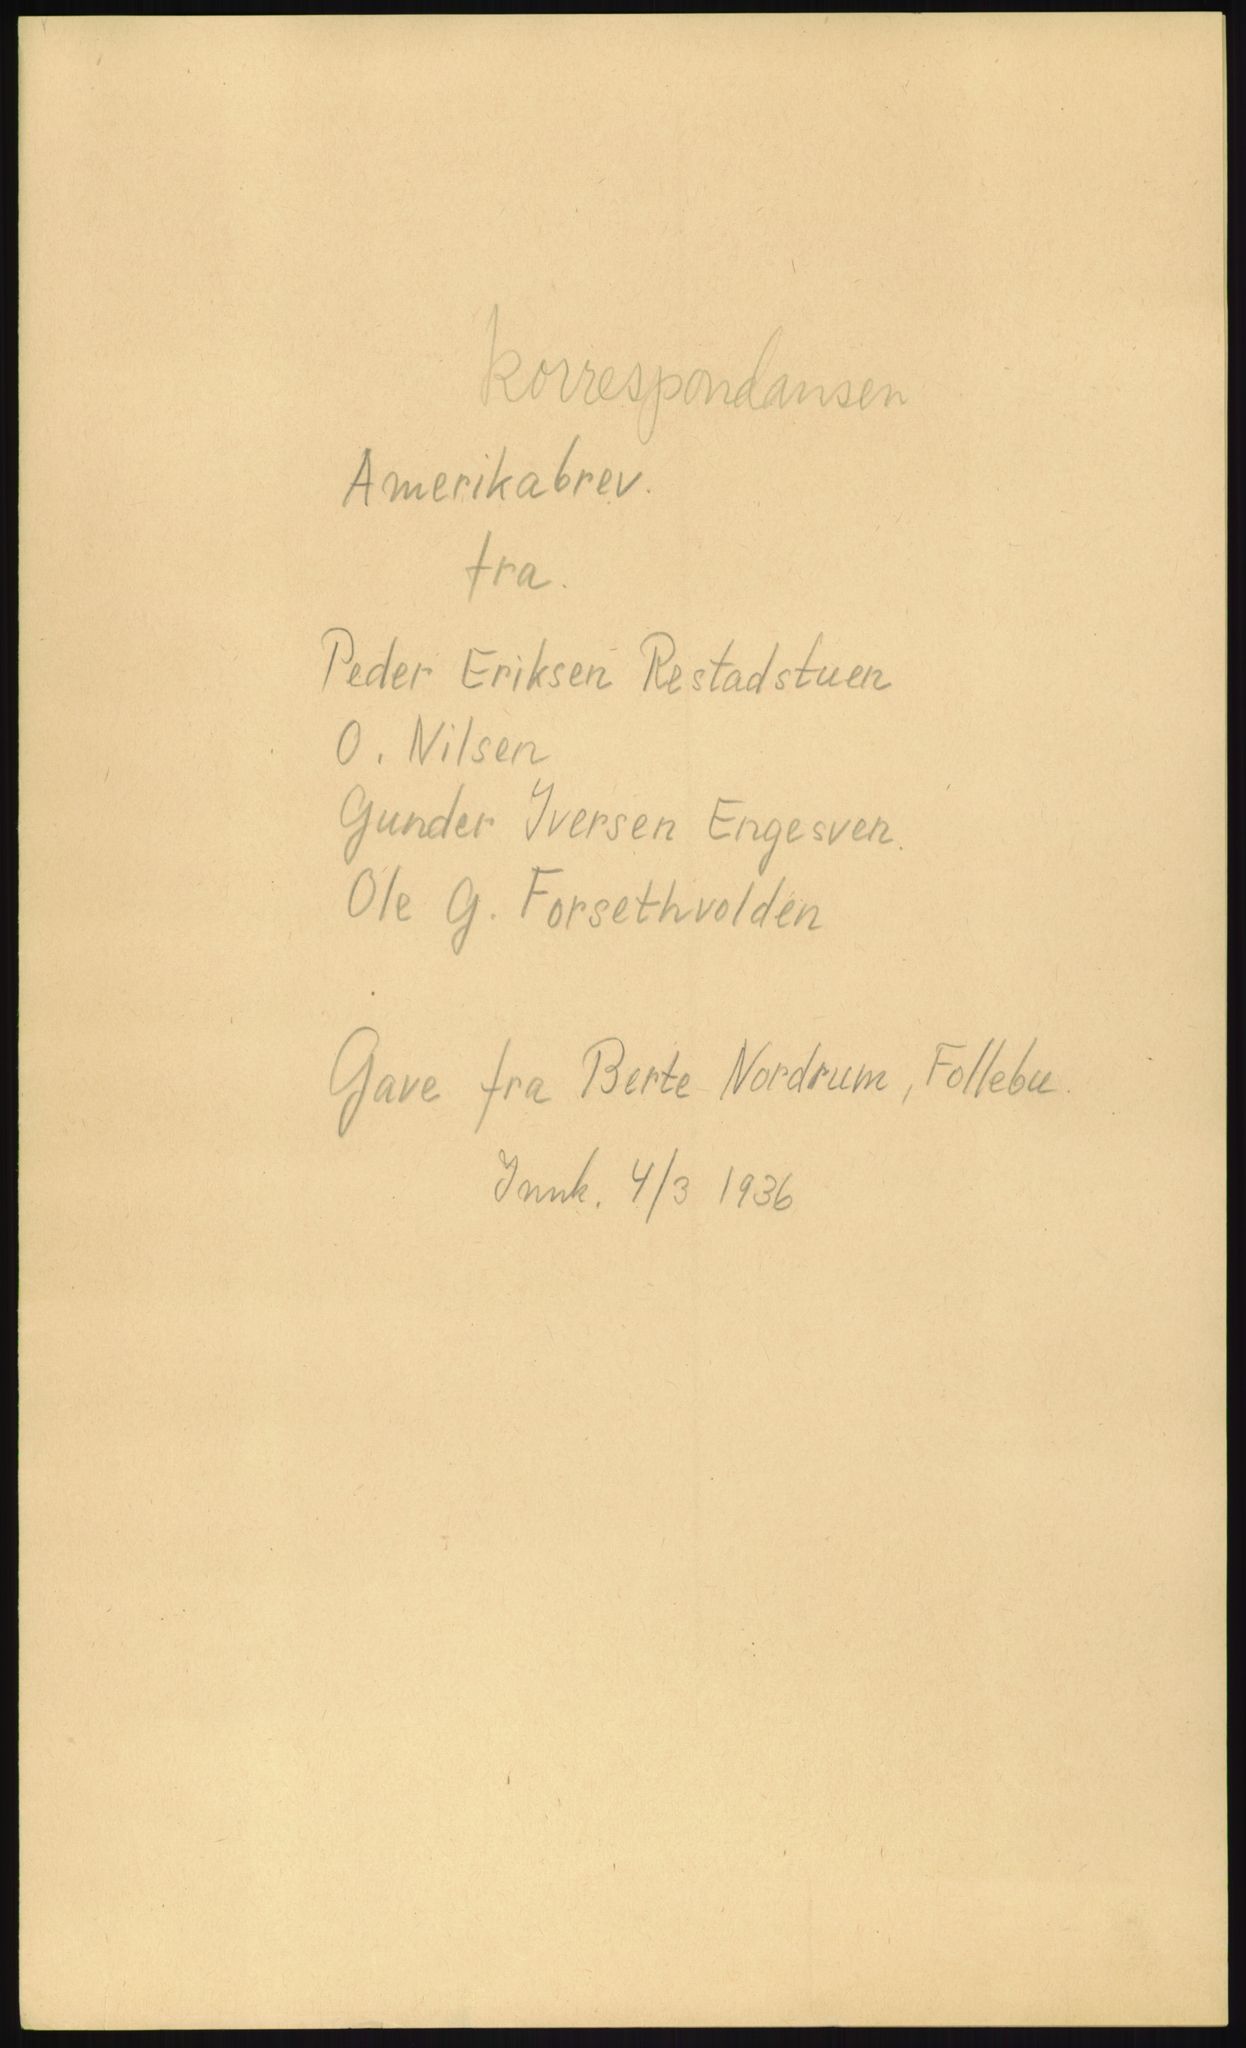 korrespondansen
Amerikabrev.
fra.
Peder Eriksen Restadstuen
O. Nilsen
Gunder Iversen Engesven.
Ole G. Forsethvolden
Gave fra Berte Nordrum, Follebu.
Innk. 4/3 1936